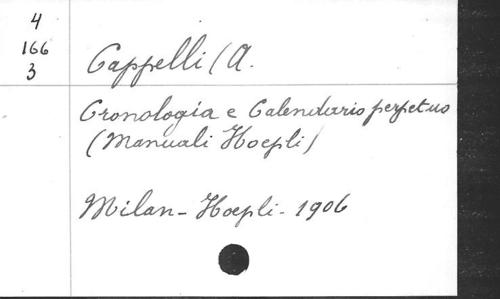 4
166
3
Cappelli (A.
Cronologia e Calendario perpetuo
(Manuali Hoepli)
Milan - Hoepli - 1906